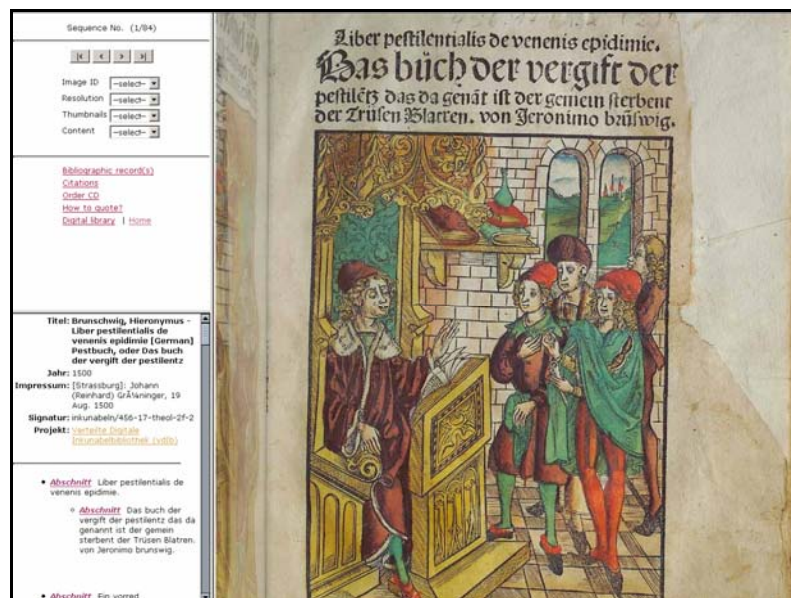 Sequence No. (1/84)
Image ID --select--
Resolution --select--
Thumbnails --select--
Content --select--
Bibliographic record(s)
Citations
Order CD
How to quote?
Digital library | Home
Titel: Brunschwig, Hieronymus -
Liber pestilentialis de
venenis epidimie [German]
Pestbuch, oder Das buch
der vergift der pestilentz
Jahr: 1500
Impressum: [Strassburg]: Johann
(Reinhard) GrÃ¼ninger, 19
Aug. 1500
Signatur: inkunabeln/456-17-theol-2f-2
Projekt: Verteilte Digitale
Inkunabelbibliothek (vdIb)
Abschnitt Liber pestilentialis de
venenis epidimie.
Abschnitt Das buch der
vergift der pestilentz das da
genannt ist der gemein
sterbent der Trüsen Blatren.
von Jeronimo brunswig.
Abschnitt Ein vorred
Liber pestilentialis de venenis epidimie.
Das büch der vergift der
pestilētz das da genāt ist der gemein sterbent
der Trüsen Blatren. von Jeronimo brüswig.